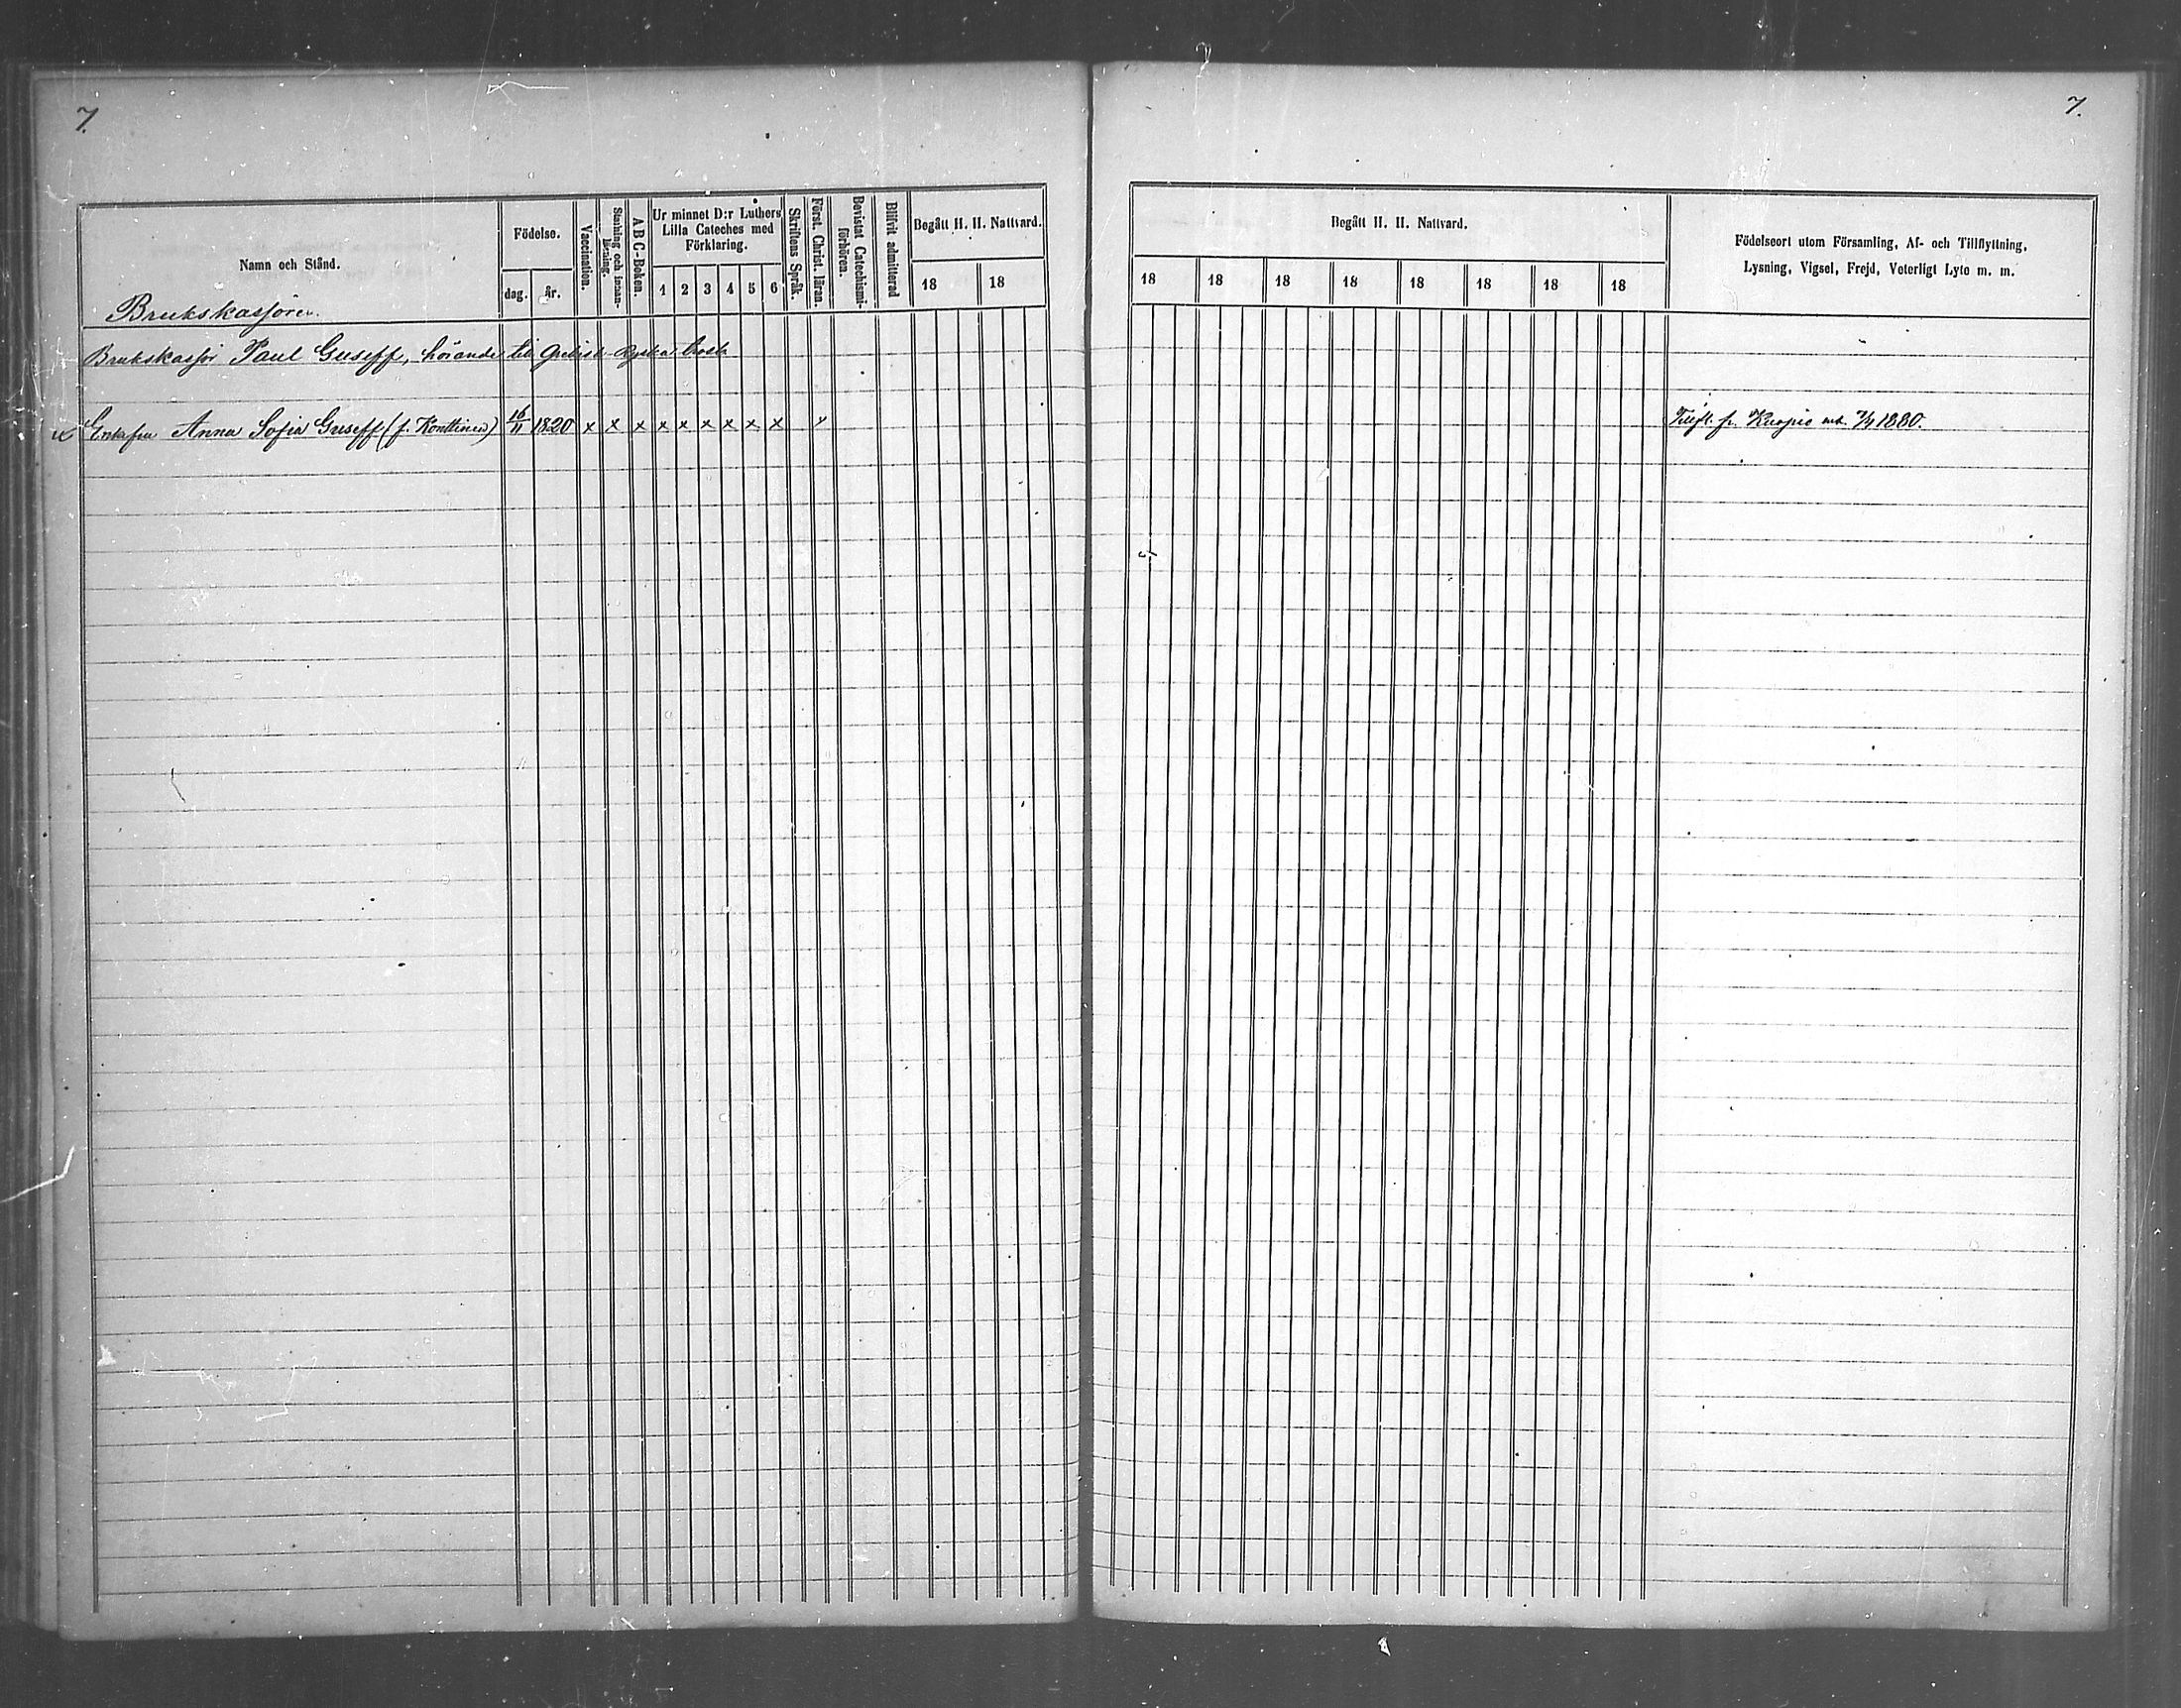 7.
7.
Namn och Stånd.
Födelse.
dag. år.
Vaccination.
Stafning och innan-läsning.
A B C-Boken.
Ur minnet D:r Luthers
Lilla Cateches med
Förklaring.
1 2 3 4 5 6
Skriftens Språk.
Först. Christ. läran.
Bevistat Catechismi-förhören.
Blifvit admitterad
Begått H. H. Nattvard.
18 18
Begått H. H. Nattvard.
18 18 18 18 18 18 18 18
Födelseort utom Församling, Af- och Tillflyttning,
Lysning, Vigsel, Frejd, Veterligt Lyte m. m.
Brukskassören.
Brukskassör Paul Guseff, hörande till Grekisk-Ryska
Enkefru Anna Sofia Guseff (f. Konttinen) 16/11 1820 x x x x x x x x x x
Tillfl. fr. Kuopio 1880.